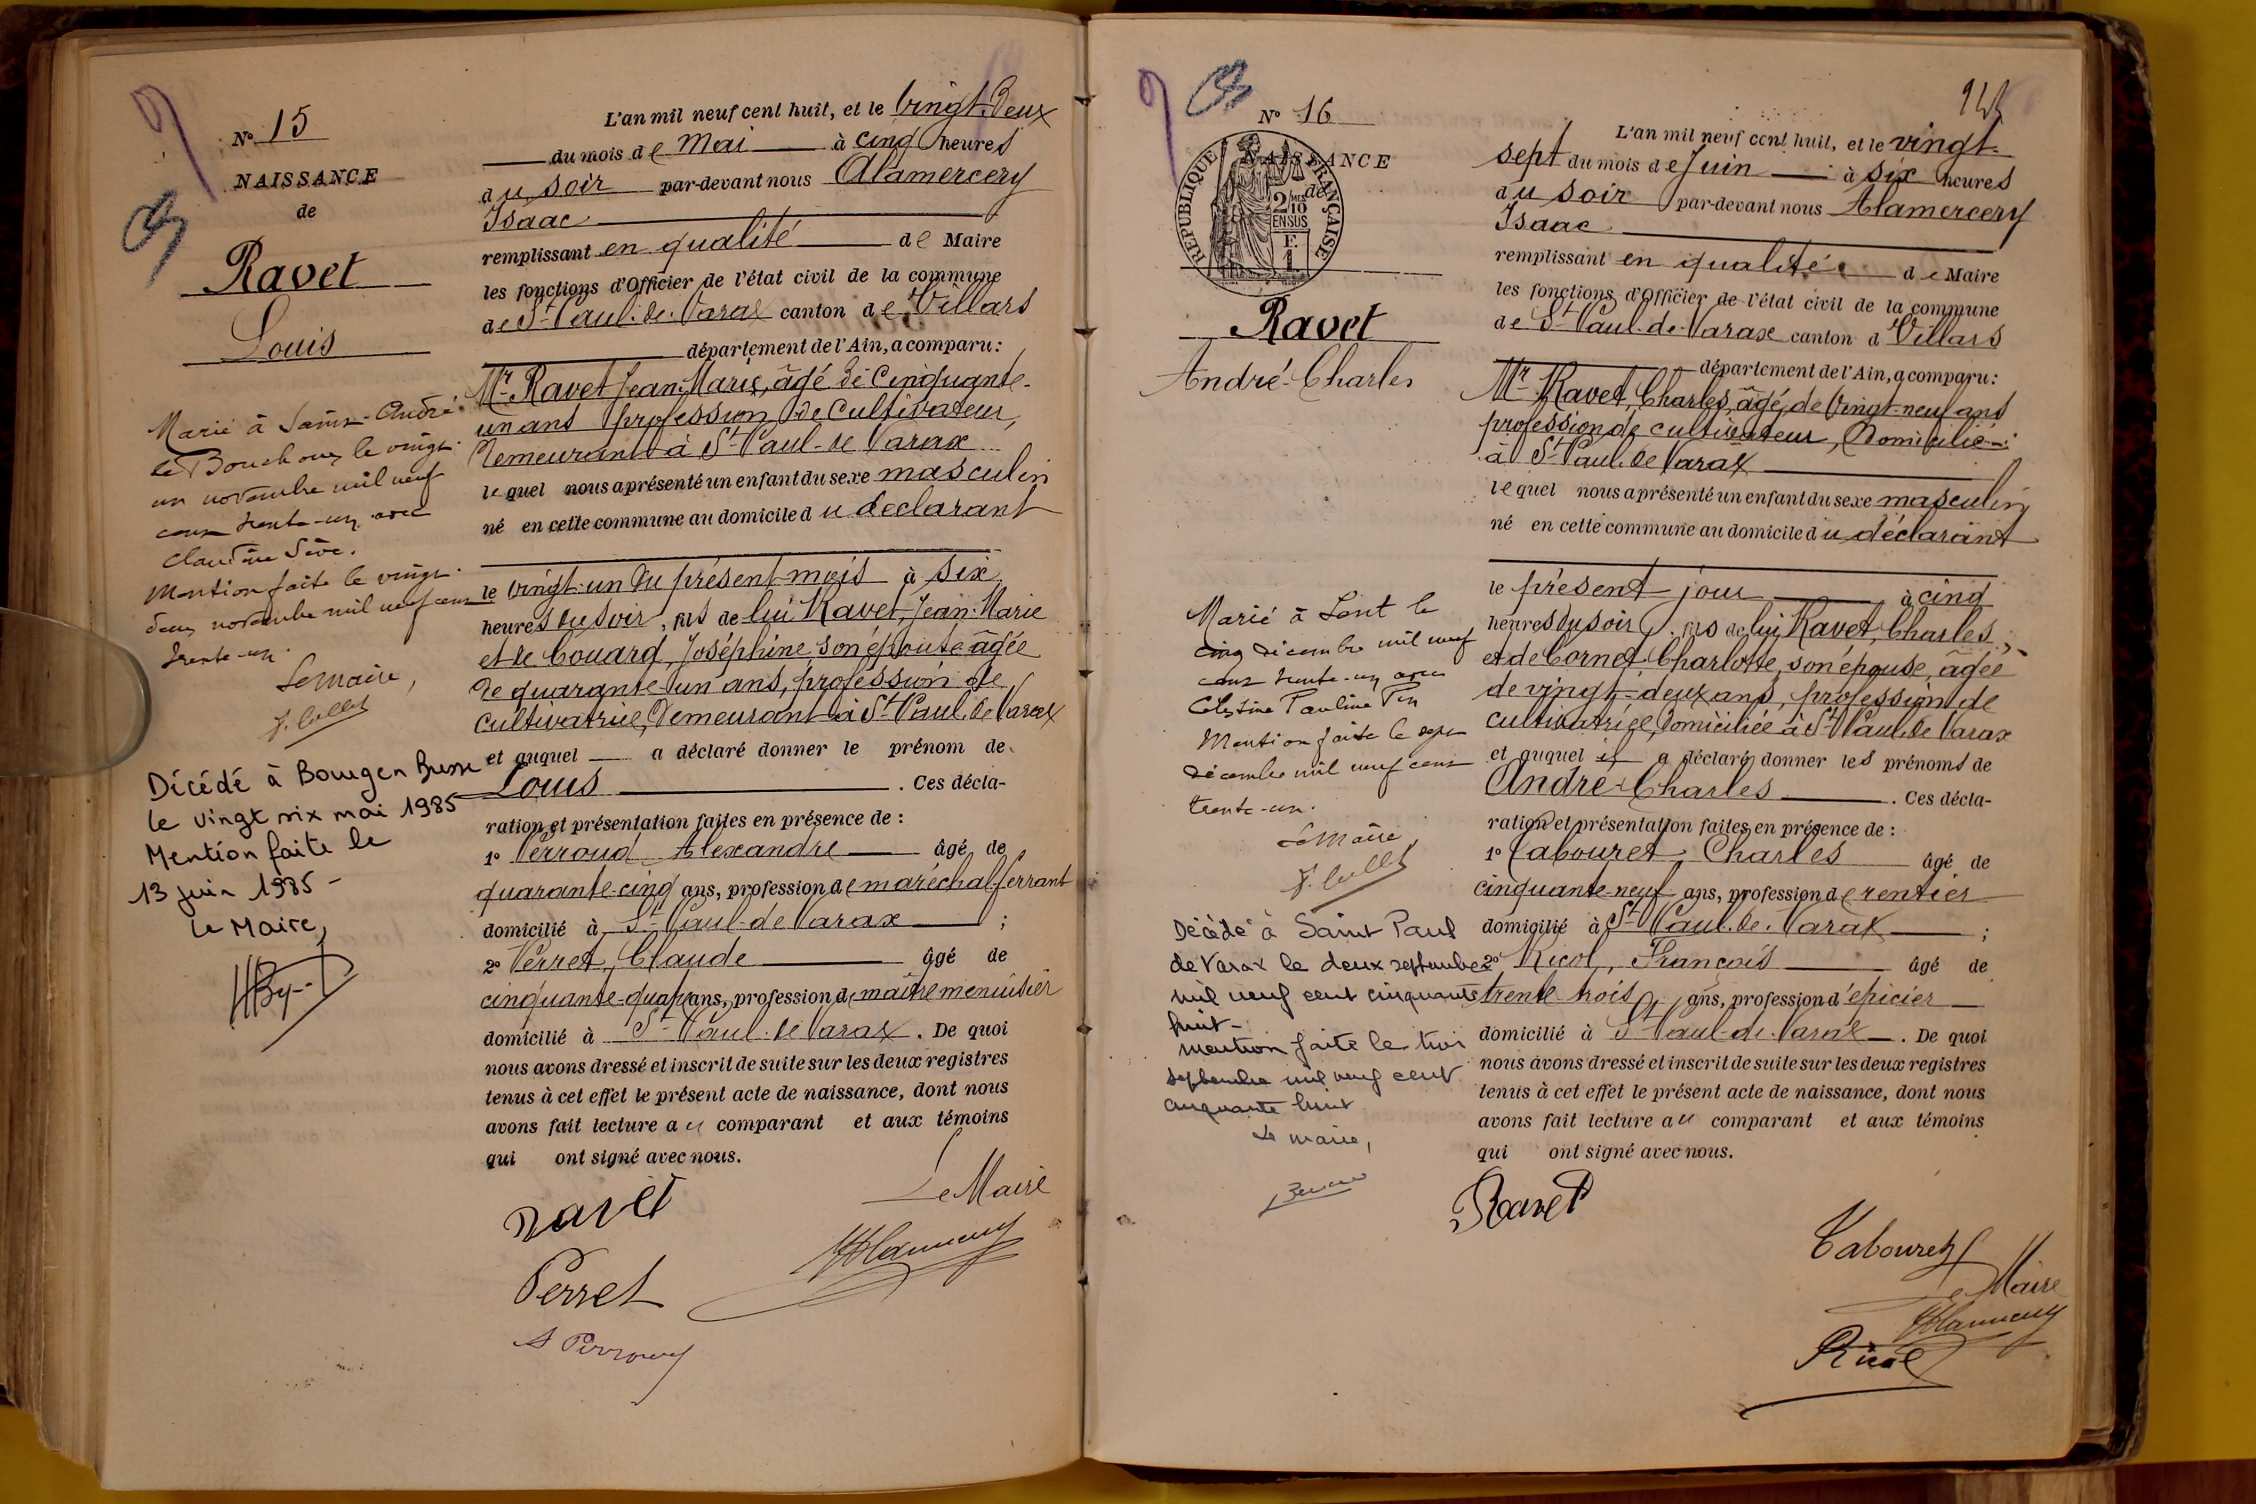 N° 15
NAISSANCE
de
Ravet
Louis
Marié à Saint-André
le Bouchoux le vingt
un novembre mil neuf
cent trente-un avec
Claudine Sève.
Mention faite le vingt
deux novembre mil neuf cent
trente-un.
Le Maire,
J. Collet
Décédé à Bourg en Bresse
le vingt six mai 1985
Mention faite le
13 juin 1985 -
Le Maire,
L'an mil neuf cent huit, et le vingt-deux
du mois de Mai à cinq heures
du soir par-devant nous Alamercery
Isaac
remplissant en qualité de Maire
les fonctions d'Officier de l'état civil de la commune
de St Paul-de-Varax canton de Villars
département de l'Ain, a comparu :
Mr Ravet Jean-Marie, âgé de Cinquante-
un ans profession de Cultivateur,
demeurant à St Paul-de Varax
lequel nous a présenté un enfant du sexe masculin
né en cette commune au domicile du déclarant
le vingt-un du présent mois à six
heures du soir, fils de lui Ravet, Jean-Marie
et de Couard, Joséphine, son épouse âgée
de quarante-un ans, profession de
cultivatrice, demeurant à St Paul de Varax
et auquel a déclaré donner le prénom de
Louis . Ces décla-
ration et présentation faites en présence de :
1° Perroud Alexandre âgé de
quarante-cinq ans, profession de maréchal-ferrant
domicilié à St Paul-de Varax ;
2° Perret, Claude âgé de
cinquante-quatre ans, profession de maître menuisier
domicilié à St Paul-de Varax . De quoi
nous avons dressé et inscrit de suite sur les deux registres
tenus à cet effet le présent acte de naissance, dont nous
avons fait lecture au comparant et aux témoins
qui ont signé avec nous.
Le Maire
Ravet
Perret
A Perroud
N° 16
NAISSANCE
de
REPUBLIQUE FRANÇAISE
2/10MES
EN SUS
F.
1
Ravet
André-Charles
Marié à Lent le
cinq décembre mil neuf
cent trente-un avec
Célestine Pauline Pin
Mention faite le sept
décembre mil neuf cent
trente-un.
Le Maire,
J. Collet
Décédé à Saint Paul
de Varax le deux septembre
mil neuf cent cinquante
huit -
mention faite le trois
septembre mil neuf cent
cinquante huit
Le maire,
L'an mil neuf cent huit, et le vingt-
sept du mois de Juin à six heures
du soir par-devant nous Alamercery
Isaac
remplissant en qualité de Maire
les fonctions d'Officier de l'état civil de la commune
de St Paul-de-Varax canton d Villars
département de l'Ain, a comparu :
Mr Ravet, Charles, âgé, de vingt-neuf ans
profession de cultivateur, Domicilié
à St Paul de Varax
lequel nous a présenté un enfant du sexe masculin
né en cette commune au domicile du déclarant
le présent jour à cinq
heures du soir, fils de lui Ravet, Charles
et de Cornet, Charlotte, son épouse, âgée
de vingt-deux ans, profession de
cultivatrice, domiciliée à St Paul de Varax
et auquel il a déclaré donner les prénoms de
André-Charles . Ces décla-
ration et présentation faites en présence de :
1° Tabouret, Charles âgé de
cinquante-neuf ans, profession de rentier
domicilié à St Paul-de-Varax ;
2° Ricol, François âgé de
trente-trois ans, profession d'épicier
domicilié à St Paul-de-Varax . De quoi
nous avons dressé et inscrit de suite sur les deux registres
tenus à cet effet le présent acte de naissance, dont nous
avons fait lecture au comparant et aux témoins
qui ont signé avec nous.
Ravet
Tabouret
Le Maire
Ricol